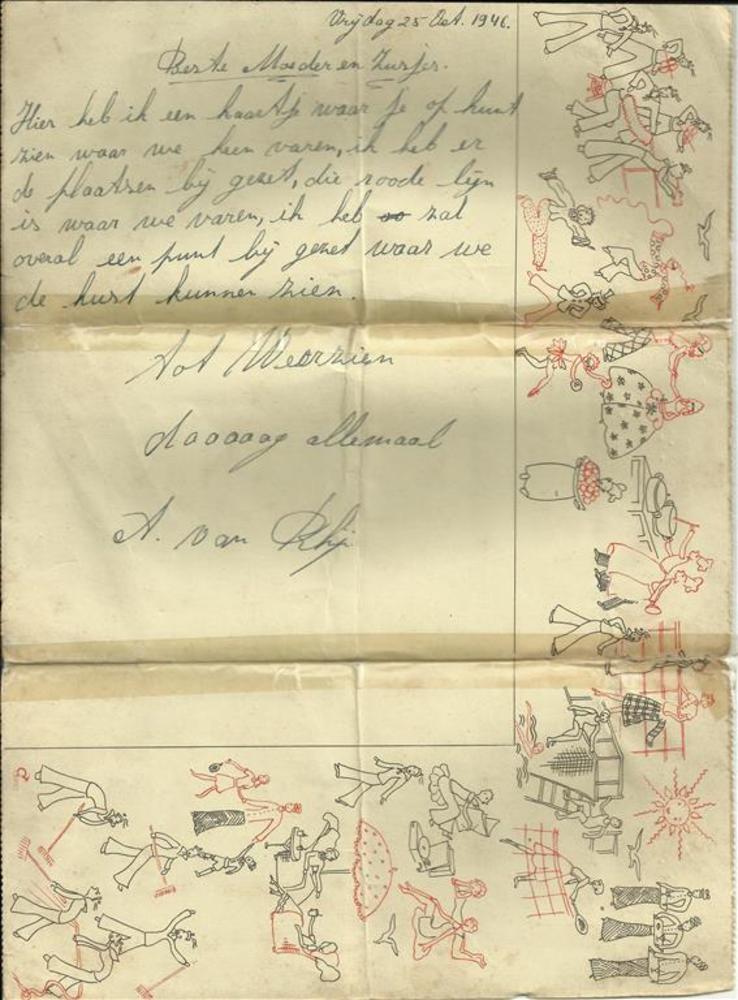 Vrijdag 25 Oct. 1946.
Beste Moeder en Zusjes.
Hier heb ik een kaartje waar je op kunt
zien waar we heen varen, ik heb er
de plaatsen bij gezet, die roode lijn
is waar we varen, ik heb zal
overal een punt bij gezet waar we
de kust kunnen zien.
Tot Weerzien
daaaaag allemaal
A. van Rhijn